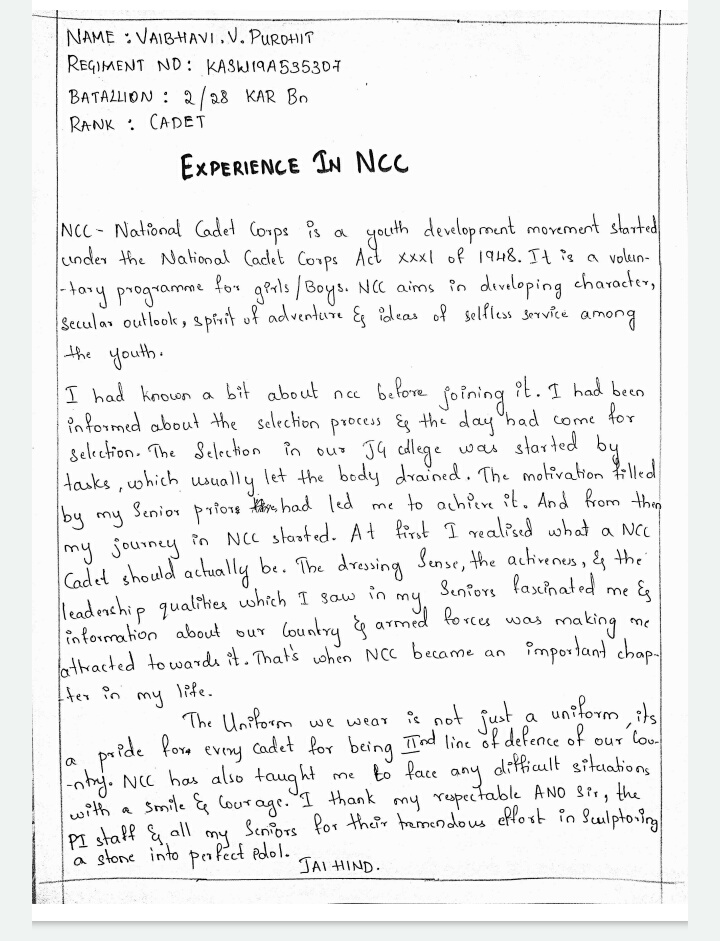 NAME : VAIBHAVI .V. PUROHIT
REGIMENT NO : KASW19A535307
BATALLION : 2/28 KAR Bn
RANK : CADET
EXPERIENCE IN NCC
NCC - National Cadet Corps is a youth development movement started
under the National Cadet Corps Act XXXI of 1948. It is a volun-
-tary programme for girls/Boys. NCC aims in developing character,
secular outlook, spirit of adventure & ideas of selfless service among
the youth.
I had known a bit about ncc before joining it. I had been
informed about the selection process & the day had come for
selection. The Selection in our JG college was started by
tasks, which usually let the body drained. The motivation filled
by my Senior priors had led me to achieve it. And from then
my journey in NCC started. At first I realised what a NCC
Cadet should actually be. The dressing Sense, the activeness, & the
leadership qualities which I saw in my Seniors fascinated me &
information about our Country & armed forces was making me
attracted towards it. That's when NCC became an important chap-
-ter in my life.
The Uniform we wear is not just a uniform, its
a pride for every cadet for being IInd line of defence of our Cou-
-ntry. NCC has also taught me to face any difficult situations
with a smile & Courage. I thank my respectable ANO Sir, the
PI staff & all my Seniors for their tremendous effort in Sculptoring
a stone into perfect idol.
JAI HIND.